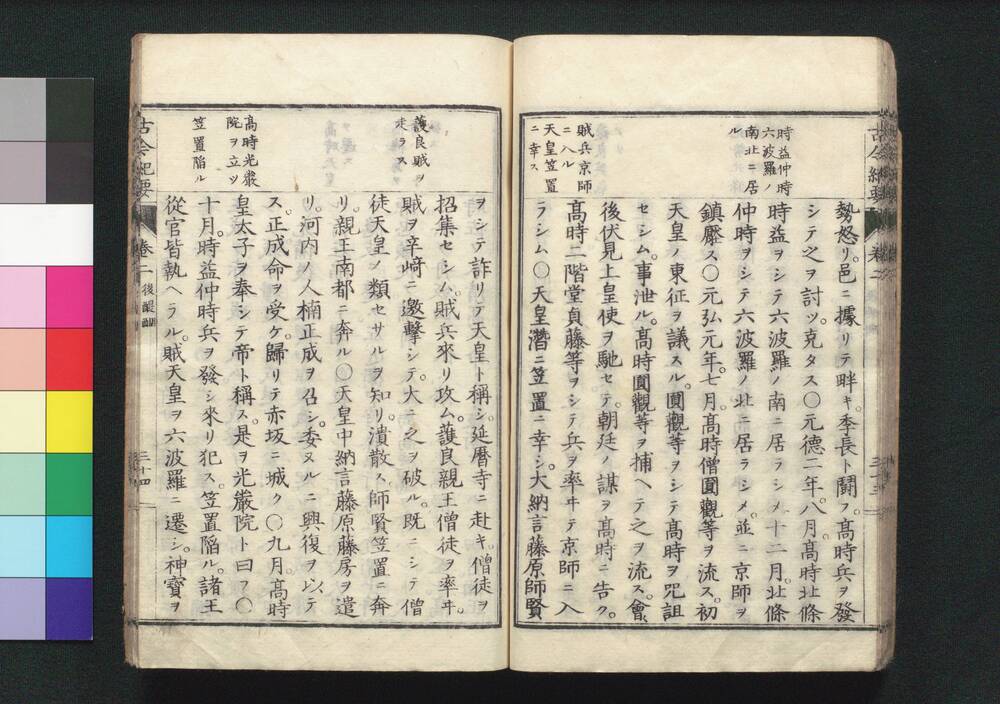 古今紀要
卷二
三十三
時益仲時
六波羅ノ
南北ニ居
ル
賊兵京師
ニ入ル
天皇笠置
ニ幸ス
勢怒リ。邑ニ據リテ畔キ。季長ト鬪フ。髙時兵ヲ發
シテ之ヲ討ツ。克タス〇元德二年。八月。髙時北條
時益ヲシテ六波羅ノ南ニ居ラシメ。十二月。北條
仲時ヲシテ六波羅ノ北ニ居ラシメ。並ニ京師ヲ
鎮壓ス〇元弘元年。七月。髙時僧圓觀等ヲ流ス。初
天皇ノ東征ヲ議スル。圓觀等ヲシテ髙時ヲ咒詛
セシム。事泄ル。髙時圓觀等ヲ捕ヘテ之ヲ流ス。會
後伏見上皇使ヲ馳セテ。朝廷ノ謀ヲ髙時ニ告ク。
髙時二階堂貞藤等ヲシテ兵ヲ率ヰテ京師ニ入
ラシム〇天皇潛ニ笠置ニ幸シ。大納言藤原師賢
護良賊ヲ
走ラス
髙時光嚴
院ヲ立ツ
笠置陷ル
ヲシテ詐リテ天皇ト稱シ。延曆寺ニ赴キ。僧徒ヲ
招集セシム。賊兵來リ攻ム。護良親王僧徒ヲ率ヰ。
賊ヲ辛﨑ニ邀擊シテ。大ニ之ヲ破ル。既ニシテ僧
徒天皇ノ類セサルヲ知リ。潰散ス。師賢笠置ニ奔
リ。親王南都ニ奔ル〇天皇中納言藤原藤房ヲ遣
リ。河内ノ人楠正成ヲ召シ。委ヌルニ興復ヲ以テ
ス。正成命ヲ受ケ。歸リテ赤坂ニ城ク〇九月。髙時
皇太子ヲ奉シテ帝ト稱ス。是ヲ光嚴院ト曰フ〇
十月。時益仲時兵ヲ發シ來リ犯ス。笠置陷ル。諸王
從官皆執ヘラル。賊天皇ヲ六波羅ニ遷シ。神寶ヲ
古今紀要
卷二
後醍醐
三十四